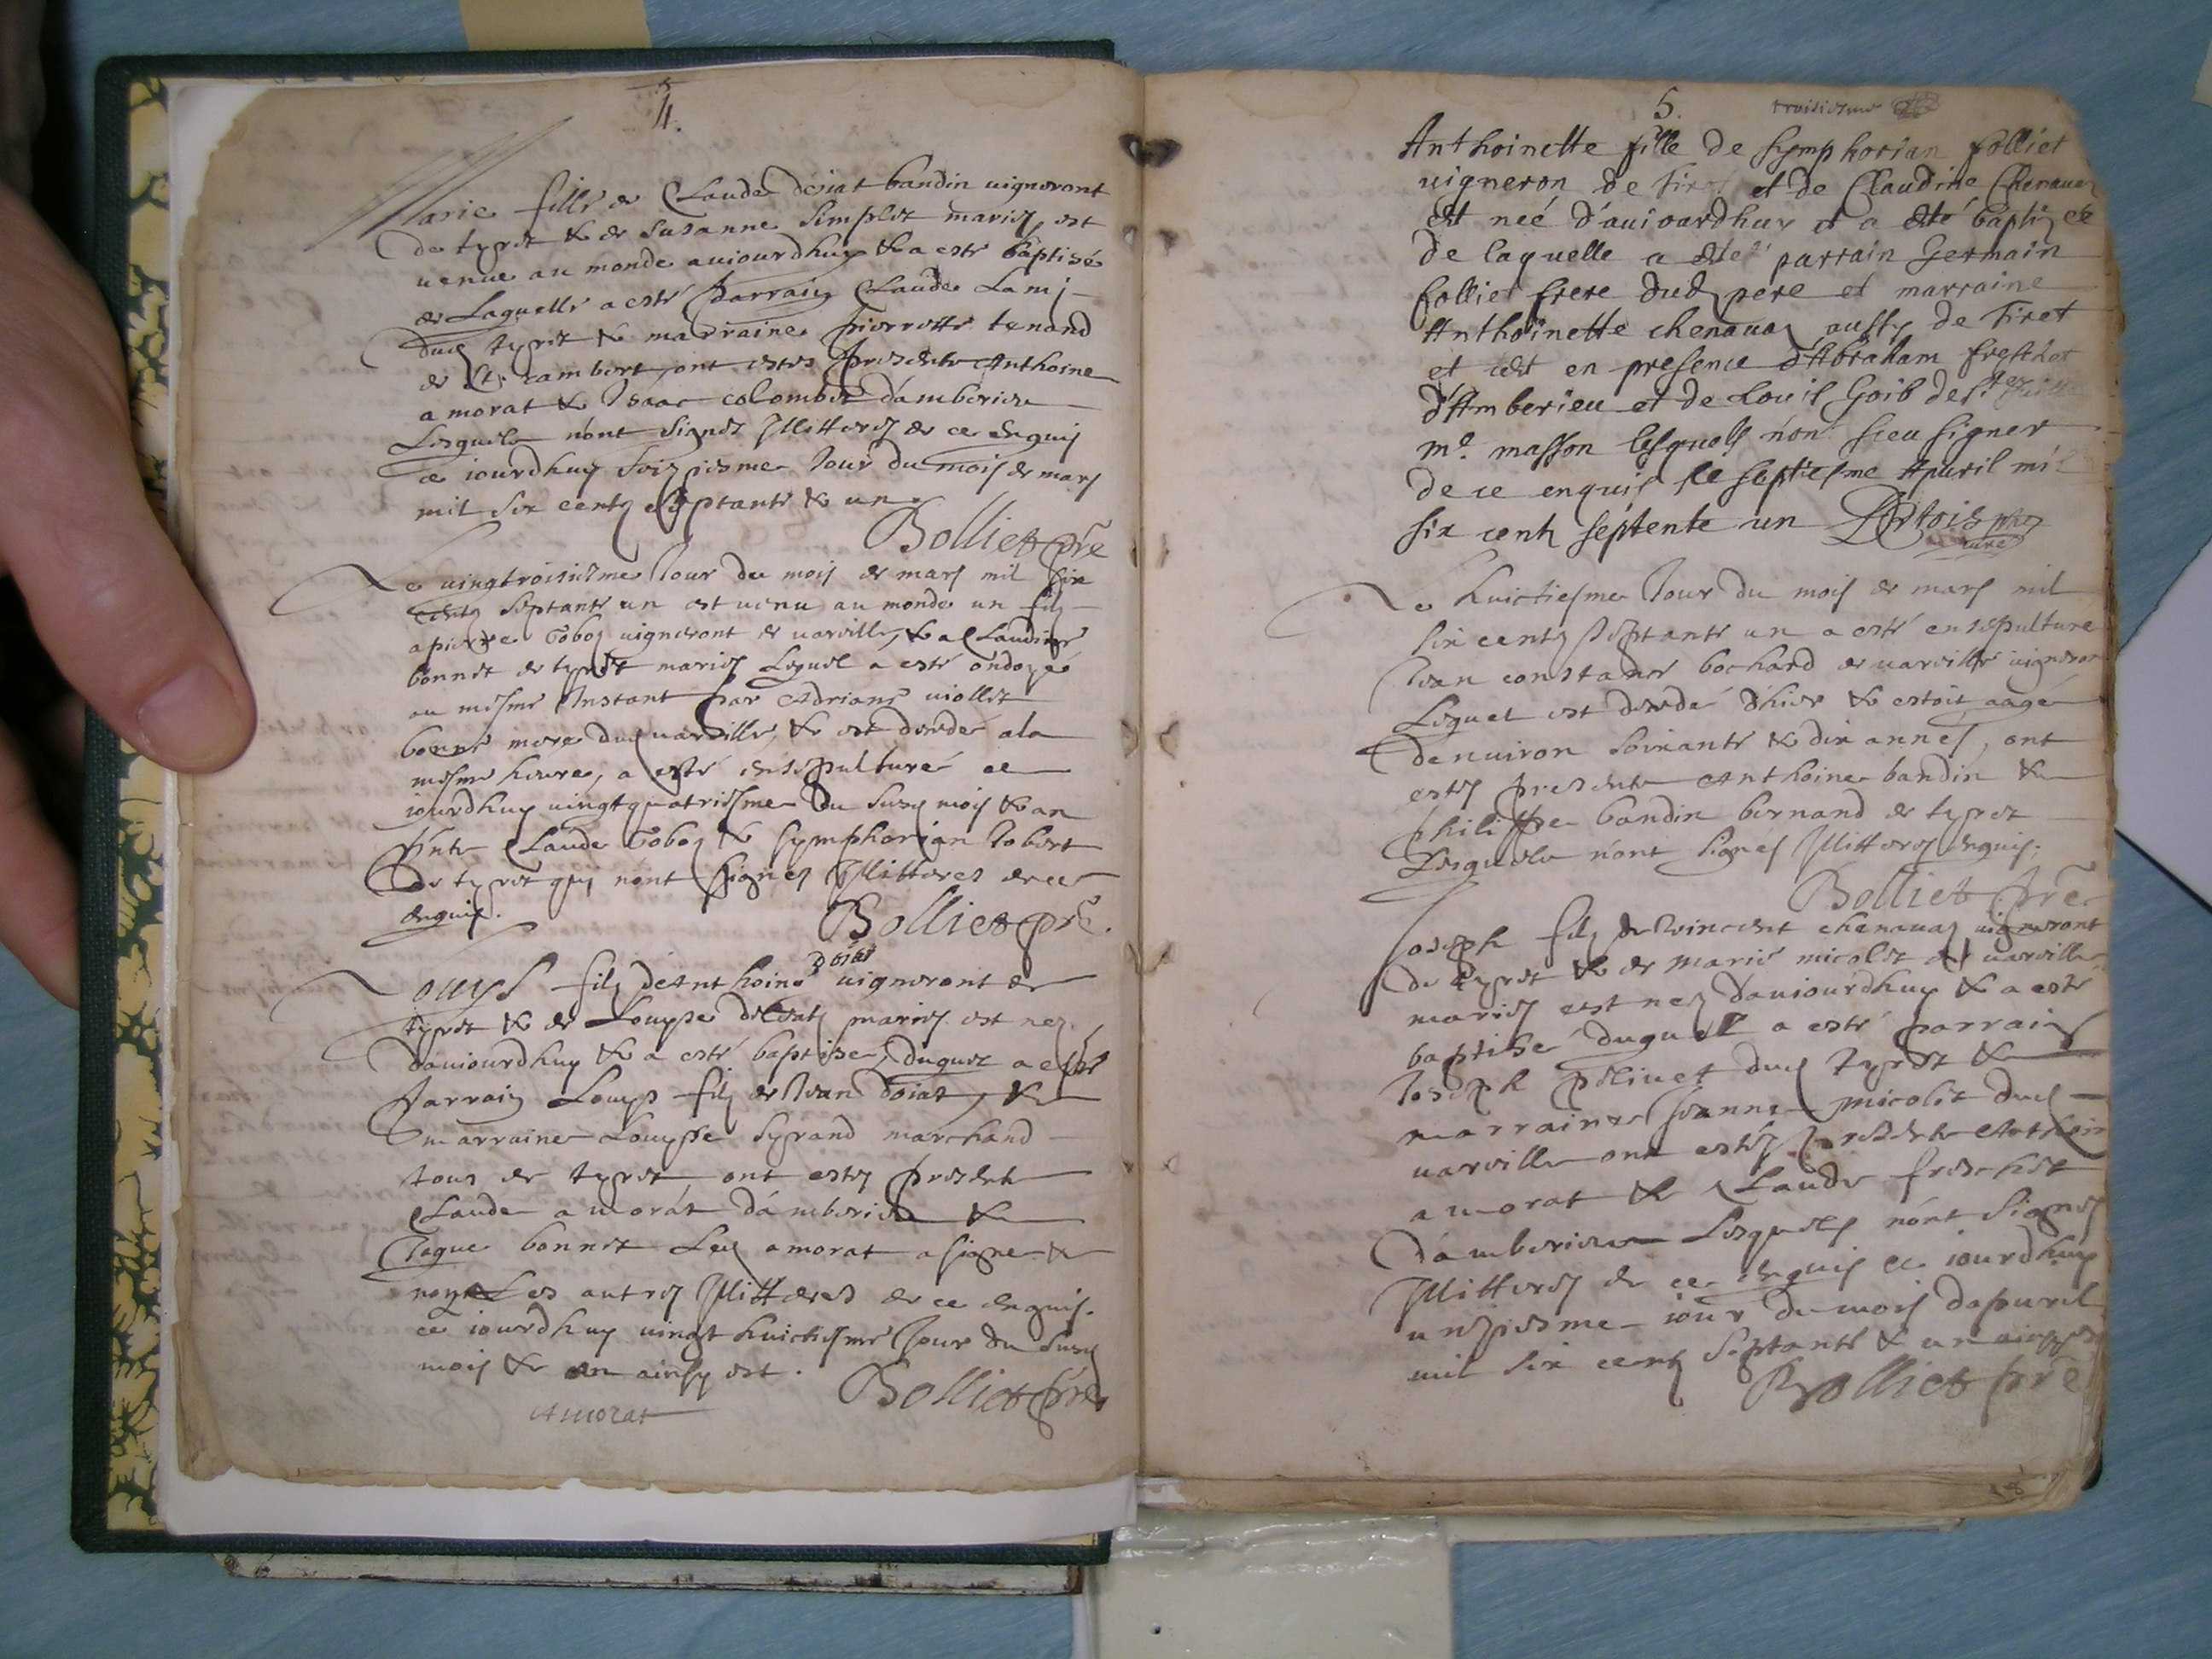 4.
Marie fille de Claude doiat bandin uigneront
de tyret & de Susanne Simplet mariez, est
uenue au monde auiourdhuy & a esté baptisé
de Laquelle a esté parrain Claude Lamj
dud tyret & marraine pierrette tenand
de St. rambert, ont estes presents Anthoine
amorat & Isaac colombet d'amberieu
Lesquels n'ont signez Illitterez de ce enquis
ce iourdhuy seiziesme Jour du mois de mars
mil six centz septante & un
Bolliet pre
Le uingtroisiesme Jour du mois de mars mil six
centz septante un est uenu au monde un filz
a pierre Goboz uigneront de uareille, & a Claudine
bonnet de tyret mariez Lequel a esté ondoyé
au mesme Instant par Adriane uiollet
bonne mere dud uareille, & est decedé a la
mesme heure, a esté ensepulturé ce
iourdhuy uingtquatriesme du susd mois & an
pnts Claude Goboz & Symphorian Gobert
de tyret quj n'ont signez Illitteres de ce
enquis.
Bolliet pre.
doiat
Louys filz de Anthoine uigneront de
tyret & de Louyse mariez est nez
d'auiourdhuy & a esté baptise, duquel a esté
Parrain Louys filz de Jean doiat, &
marraine Louysse Syrand marchand
tous de tyret, ont estez presents
Claude amorat d'amberieu &
Claque bonnet Led amorat a signe &
non Les autres Illitteres de ce enquis.
ce iourdhuy uingt huictiesme Jour du susd
mois & an ainsy est.
Bolliet pre
Amorat
5.
troisiesme
Anthoinette fille de Symphorian folliet
uigneron de tiret et de Claudine Chenauaz
est neé d'auiourdhuy et a esté baptizée
de laquelle a esté parrain Germain
folliet frere dud pere et marraine
Anthoinette chenauaz aussy de tiret
et cest en presence d'Abraham freschet
d'Amberieu et de Louis Goib de
me. masson lesquels n'ont sceu signer
de ce enquis le septiesme Apuril mil
six centz septente un Dortois pbre
curé
Le huictiesme Jour du mois de mars mil
six centz septante un a esté ensepulturé
Jean constance bochard de uareille uigneron
Lequel est decedé d'hier & estoit aagé
denuiron soixante & dix annes, ont
estes presents Anthoine bandin &
philippe bandin bernand de tyret
Lesquels n'ont signés Illitterez enquis.
Bolliet pre
Joseph filz de Vincent chenauaz uigneront
de tyret & de marie micolet de uareille
mariez est nez d'auiourdhuy & a esté
baptisé duquel a esté parrain
Joseph poliuet dud tyret &
marraine Jeanne micolet dud
uareille ont estez presents Anthoine
amorat & Claude freschet
d'amberieu Lesquels n'ont signez
Illitterez de ce enquis ce iourdhuy
unziesme iour du mois dapuril
mil six centz septante & un ainsy est
Bolliet pre